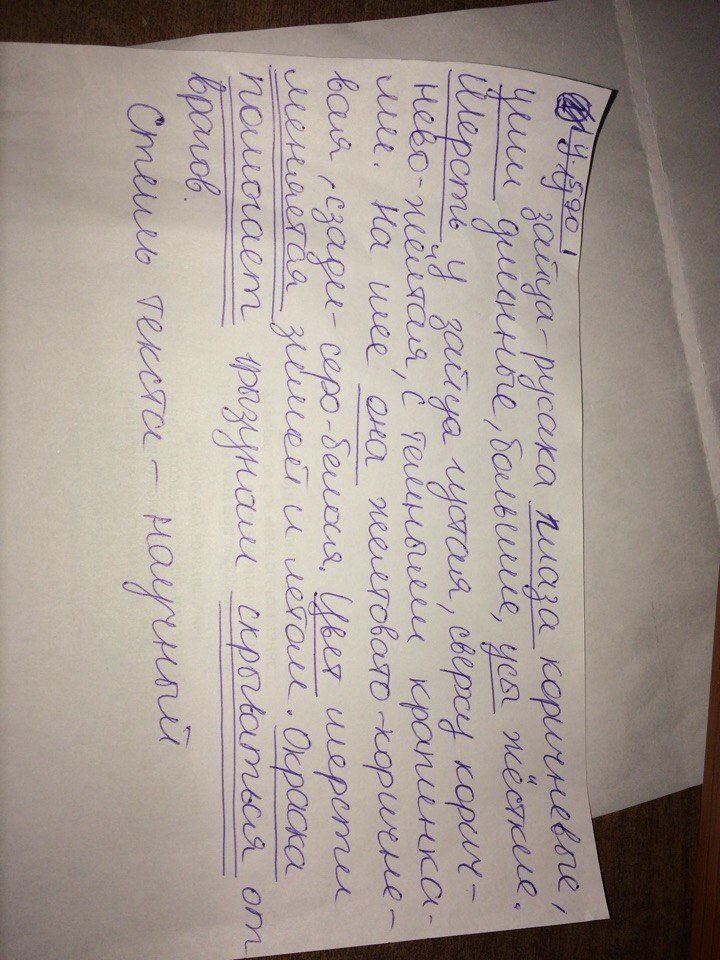 У. 590
У зайца-русака глаза коричневые,
уши длинные, большие, усы жёсткие.
Шерсть у зайца густая, сверху корич-
нево-жёлтая, с тёмными крапинка-
ми. На шее она желтовато-коричне-
вая, сзади - серо-белая. Цвет шерсти
меняется зимой и летом. Окраска
помогает грызунам скрываться от
врагов.
Стиль текста - научный